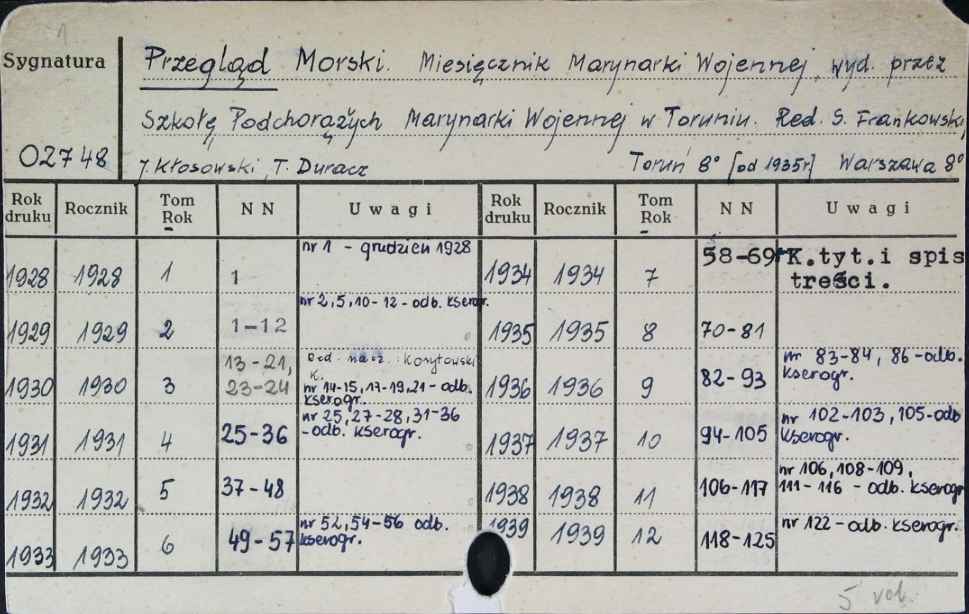 1.
Sygnatura
Przegląd Morski. Miesięcznik Marynarki Wojennej, wyd. przez
Szkołę Podchorążych Marynarki Wojennej w Toruniu. Red. S. Frankowski,
02748
J. Kłosowski, T. Duracz Toruń 8° [od 1935r] Warszawa 8°
Rok druku Rocznik Tom Rok NN Uwagi Rok druku Rocznik Tom Rok NN Uwagi
1928 1928 1 1 nr 1 - grudzien 1928
1929 1929 2 1-12 nr 2,5,10-12 - odb. kserogr.
1930 1930 3 13-21, 23-24 Red. nacz. Korytowski K.
nr 14-15, 17-19, 21 - odb. kserogr.
1931 1931 4 25-36 nr 25, 27-28, 31-36 - odb. kserogr.
1932 1932 5 37-48
1933 1933 6 49-57 nr 52, 54-56 odb. kserogr.
1934 1934 7 58-69 +K.tyt.i spis treści.
1935 1935 8 70-81
1936 1936 9 82-93 nr 83-84, 86 - odb. kserogr.
1937 1937 10 94-105 nr 102-103, 105 - odb kserogr.
1938 1938 11 106-117 nr 106, 108-109, 111-116 - odb. kserogr
1939 1939 12 118-125 nr 122 - odb. kserogr.
5 vol.